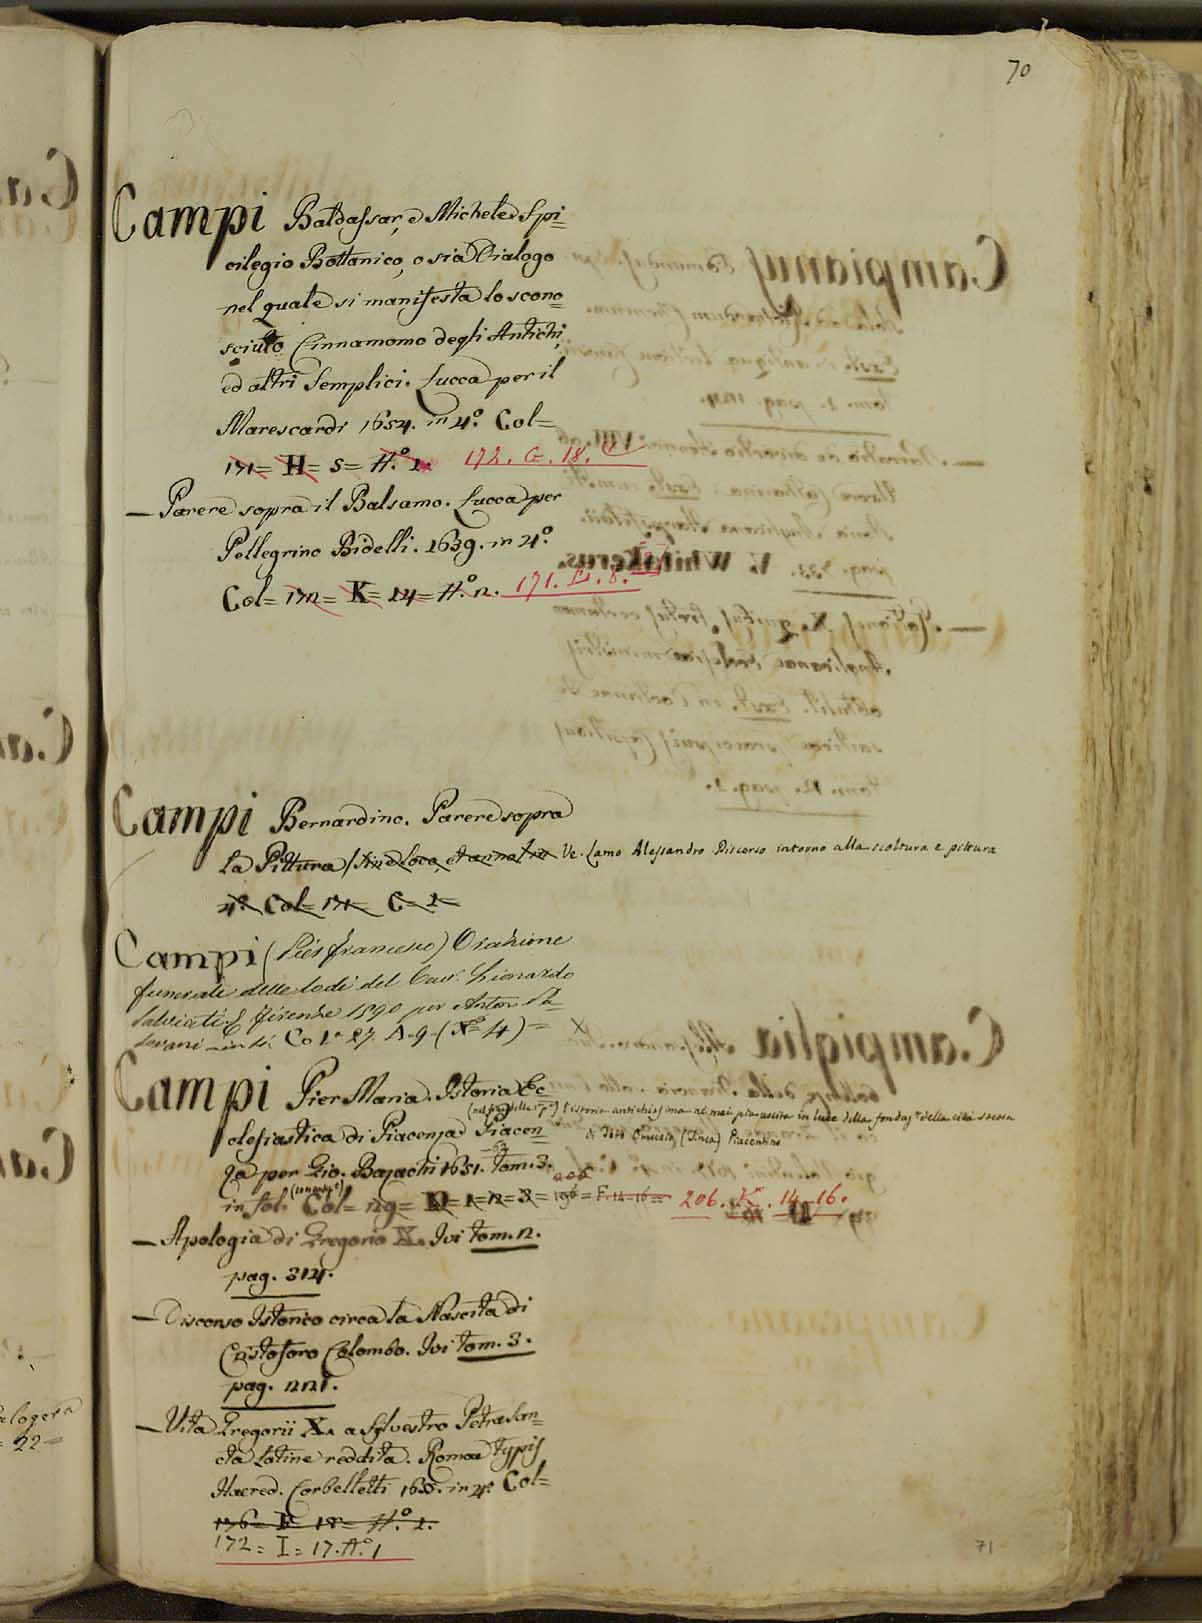 70
Campi Baldassar, e Michele Spi=
cilegio Bottanico, o sia Dialogo
nel quale si manifesta lo scono=
sciuto Cinnamomo degli Antichi,
ed altri Semplici. Lucca per il
Marescardi 1654. in 4.º Col=
171= H= 5= N.º 1. 172. G. 18.
— Parere sopra il Balsamo. Lucca per
Pellegrino Bidelli. 1639. in 4.º
Col= 172= K= 14= N.º 2. 171. E. 8.
Campi Bernardino. Parere sopra
la Pittura / Sine Loco, et anno / in Ve. Lamo Alessandro Discorso intorno alla scoltura e pittura
4.º Col= 171= C= 1=
Campi (Pier francesco) Orazione
funerale delle lodi del Cav. Lionardo
Salviati. Firenze 1590 per Anton Pa=
dovani in 4. Col. 27. A. 9. (Nº 4) = X
Campi Pier Maria. Istoria Ec=
clesiastica di Piacenza Piacen=
(nel fine della) Istoria antichissima ne mai piu uscita in luce della fondaz.ne della città stessa
di Tito Omusio (Tinca) Piacentino
za per Gio. Bazachi 1651. -62 tom. 3.
in fol. Col= 129= D= 1=2=3= 196 206 = F. 14-16= 206. K. 14-16.
— Apologia di Gregorio X. Ivi tom. 2.
pag. 314.
— Discorso Istorico circa la Nascita di
Cristoforo Colombo. Ivi tom. 3.
pag. 221.
— Vita Gregorii X. a Sylvestro Petrasan=
cta Latine reddita. Romae typis
Haered. Corbelletti 1655. in 4.º Col=
176= E= 18= N.º 1.
172= I= 17. N.º 1
71
22=